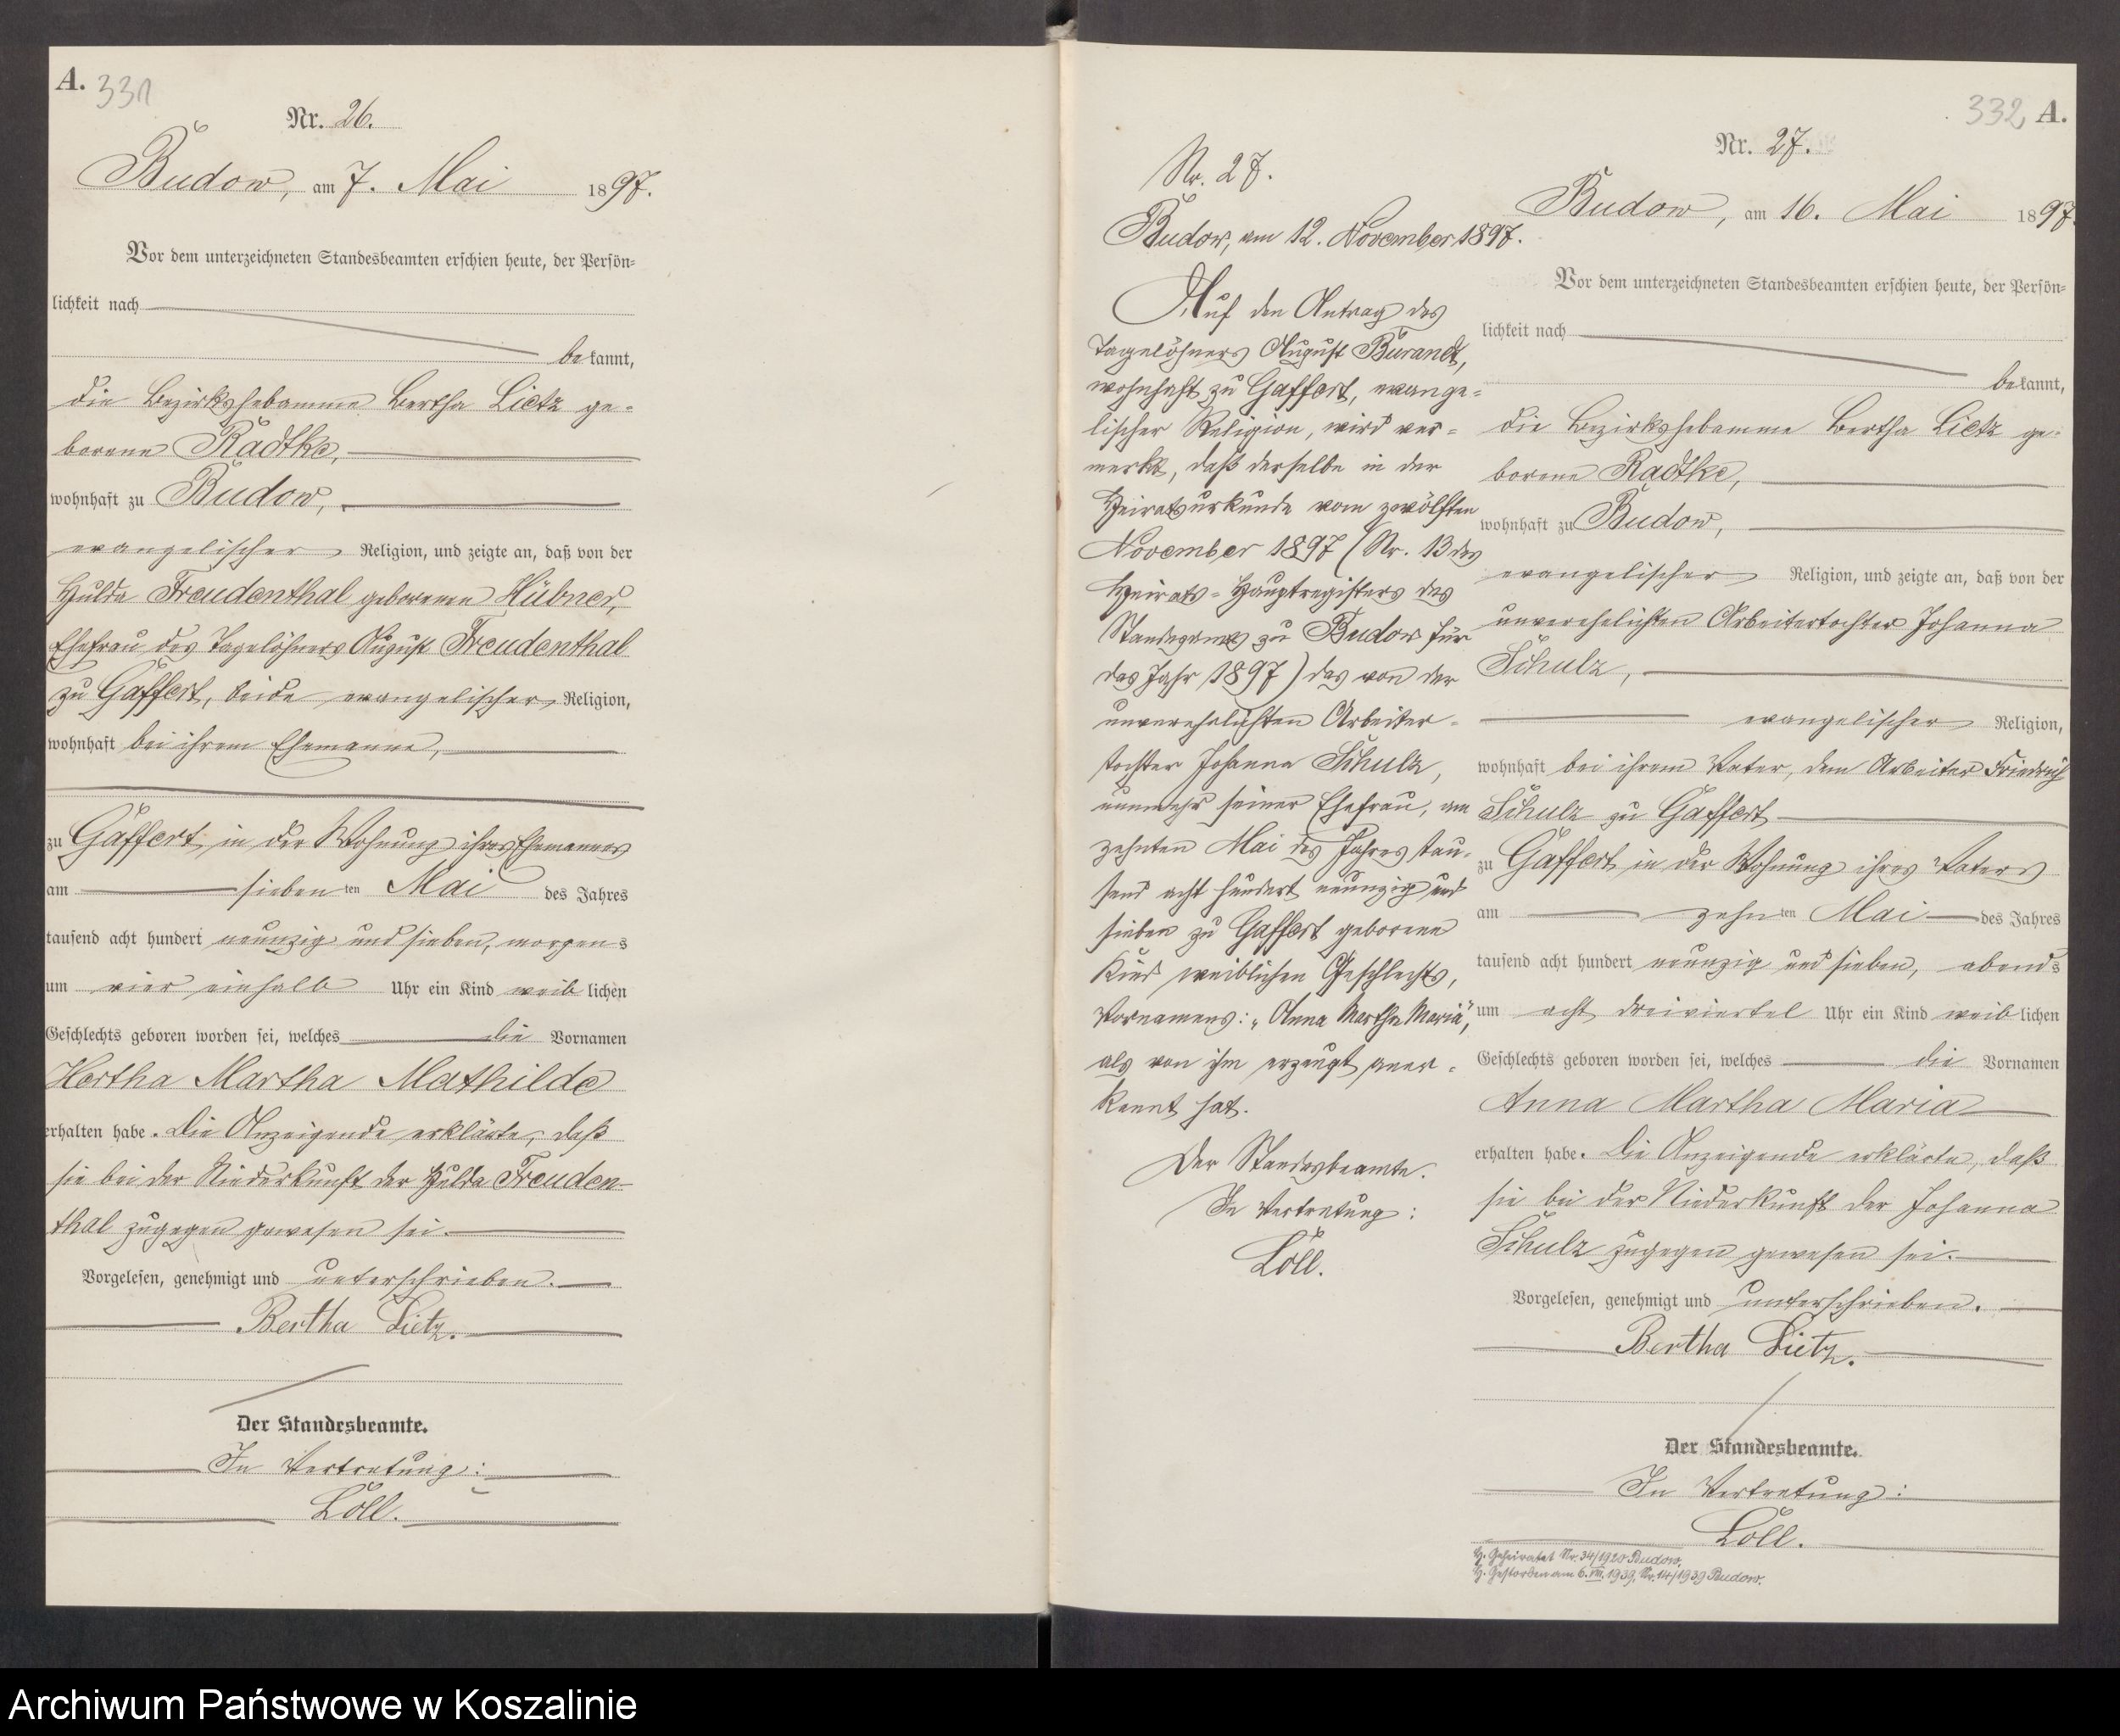 A. 331
Nr. 26.
Budow, am 7. Mai 1897.
Vor dem unterzeichneten Standesbeamten erschien heute, der Persön-
lichkeit nach
bekannt,
die Bezirkshebamme Bertha Lietz ge-
borene Radtke,
wohnhaft zu Budow,
evangelischer Religion, und zeigte an, daß von der
Hulda Freudenthal geborenen Hübner,
Ehefrau des Tagelöhners August Freudenthal
zu Gaffert, beide evangelischer Religion,
wohnhaft bei ihrem Ehemanne,
zu Gaffert in der Wohnung ihres Ehemannes
am siebenten Mai des Jahres
tausend acht hundert neunzig und sieben, morgens
um vier einhalb Uhr ein Kind weiblichen
Geschlechts geboren worden sei, welches die Vornamen
Hertha Martha Mathilde
erhalten habe. Die Anzeigende erklärte, daß
sie bei der Niederkunft der Hulda Freuden-
thal zugegen gewesen sei.
Vorgelesen, genehmigt und unterschrieben.
Bertha Lietz.
Der Standesbeamte.
In Vertretung:
Löll.
332 A.
Nr. 27.
Budow, am 16. Mai 1897.
Vor dem unterzeichneten Standesbeamten erschien heute, der Persön-
lichkeit nach
bekannt,
die Bezirkshebamme Bertha Lietz ge-
borene Radtke,
wohnhaft zu Budow,
evangelischer Religion, und zeigte an, daß von der
unverehelichten Arbeitertochter Johanna
Schulz,
evangelischer Religion,
wohnhaft bei ihrem Vater, dem Arbeiter Friedrich
Schulz zu Gaffert
zu Gaffert in der Wohnung ihres Vaters
am zehnten Mai des Jahres
tausend acht hundert neunzig und sieben, abends
um acht dreiviertel Uhr ein Kind weiblichen
Geschlechts geboren worden sei, welches die Vornamen
Anna Martha Maria
erhalten habe. Die Anzeigende erklärte, daß
sie bei der Niederkunft der Johanna
Schulz zugegen gewesen sei.
Vorgelesen, genehmigt und unterschrieben.
Bertha Lietz.
Der Standesbeamte.
In Vertretung:
Löll.
H. Geheiratet Nr. 34/1920 Budow.
H. Gestorben am 6. VIII. 1939, Nr. 14/1939 Budow.
Nr. 27.
Budow, am 12. November 1897.
Auf den Antrag des
Tagelöhners August Burandt,
wohnhaft zu Gaffert, evange-
lischer Religion, wird ver-
merkt, daß derselbe in der
Heiratsurkunde vom zwölften
November 1897 (Nr. 13 des
Heirats-Hauptregisters des
Standesamts zu Budow für
das Jahr 1897) das von der
unverehelichten Arbeiter-
tochter Johanna Schulz,
nunmehr seiner Ehefrau, am
zehnten Mai des Jahres tau-
send acht hundert neunzig und
sieben zu Gaffert geborene
Kind weiblichen Geschlechts,
Vornamens: "Anna Martha Maria",
als von ihm erzeugt aner-
kannt hat.
Der Standesbeamte.
In Vertretung:
Löll.
Archiwum Państwowe w Koszalinie